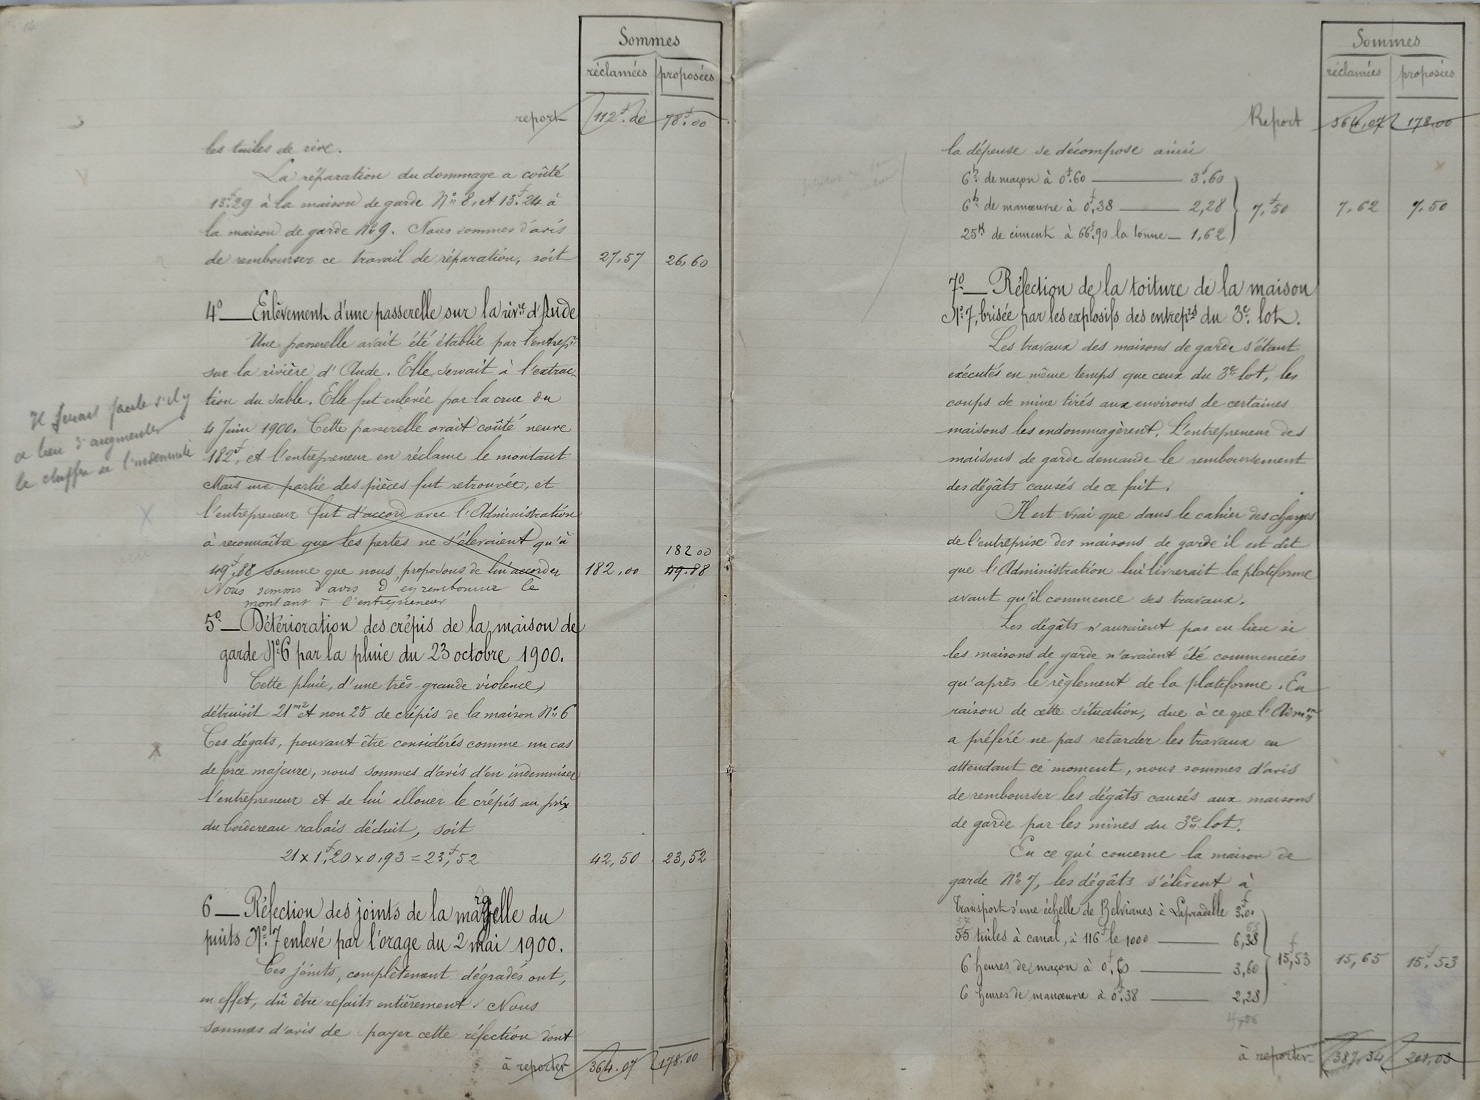 Sommes
réclamées proposées
report 112f.00 78f.00
les tuiles de rive.
La réparation du dommage a coûté
13f.29 à la maison de garde No 8, et 13f.24 à
la maison de garde No 9. Nous sommes d'avis
de rembourser ce travail de réparation, soit 27,57 26,60
4o — Enlèvement d'une passerelle sur la rivre d'Aude
Une passerelle avait été établie par l'entrepr
sur la rivière d'Aude. Elle servait à l'extrac
tion du sable. Elle fut enlevée par la crue du
4 Juin 1900. Cette passerelle avait coûté neuve
182f, et l'entrepreneur en réclame le montant
Mais une partie des pièces fut retrouvée, et
l'entrepreneur fut d'accord avec l'Administration
à reconnaître que les pertes ne s'élevaient qu'à
182 00
49f.88 somme que nous proposons de lui accorder 182,00 49.88
Nous sommes d'avis d'en rembourser le
montant à l'entrepreneur
Il faut s'il y
a lieu d'augmenter
le chiffre de l'indemnité
5o — Détérioration des crépis de la maison de
garde No 6 par la pluie du 23 octobre 1900.
Cette pluie, d'une très grande violence,
détruisit 21m2 et non 25 de crépis de la maison No 6
Ces dégats, pouvant être considérés comme un cas
de force majeure, nous sommes d'avis d'en indemniser
l'entrepreneur et de lui allouer le crépis au prix
du bordereau rabais déduit, soit
21 x 1f,20 x 0,93 = 23f,52 42,50 23,52
6 — Réfection des joints de la margelle du
puits No 7 enlevé par l'orage du 2 mai 1900.
Ces joints, complètement dégradés ont,
en effet, dû être refaits entièrement. Nous
sommes d'avis de payer cette réfection dont
à reporter 364.07 178.00
Sommes
réclamées proposées
Report 364,07 178.00
la dépense se décompose ainsi
6h de maçon à 0f.60 — 3f.60
6h de manœuvre à 0f,38 — 2,28 7f,50 7,62 7,50
25k de ciment à 66f.90 la tonne — 1,62
7o — Réfection de la toiture de la maison
No 7, brisée par les explosifs des entreprs du 3e lot.
Les travaux des maisons de garde s'étant
exécutés en même temps que ceux du 3e lot, les
coups de mine tirés aux environs de certaines
maisons les endommagèrent. L'entrepreneur des
maisons de garde demande le remboursement
des dégâts causés de ce fait.
Il est vrai que dans le cahier des charges
de l'entreprise des maisons de garde il est dit
que l'Administration lui livrerait la plateforme
avant qu'il commence ses travaux.
Les dégâts n'auraient pas eu lieu si
les maisons de garde n'avaient été commencées
qu'après le règlement de la plateforme. En
raison de cette situation, due à ce que l'Admon
a préféré ne pas retarder les travaux en
attendant ce moment, nous sommes d'avis
de rembourser les dégâts causés aux maisons
de garde par les mines du 3e lot.
En ce qui concerne la maison de
garde No 7, les dégâts s'élèvent à
Transport d'une échelle de Belvianes à Lapradelle 3f.00
55 tuiles à canal, à 116f le 1000 — 6,38
6 heures de maçon à 0f.60 — 3,60 15f,53 15,65 15f.53
6 heures de manœuvre à 0f.38 — 2,28
à reporter 387.34 201.03